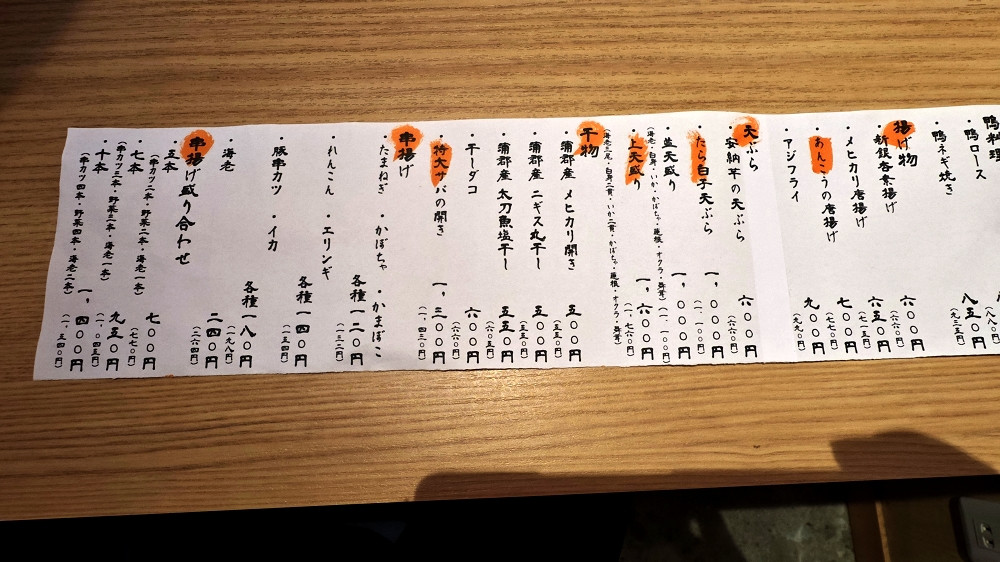 鴨料理
・鴨ロース
・鴨ネギ焼き 八五〇円
(九三五円)
揚げ物
・新銀杏素揚げ 六〇〇円
(六六〇円)
・メヒカリ唐揚げ 六五〇円
(七一五円)
・あんこうの唐揚げ 七〇〇円
(七七〇円)
・アジフライ 九〇〇円
(九九〇円)
天ぷら
・安納芋の天ぷら 六〇〇円
(六六〇円)
・たら白子天ぷら 一,〇〇〇円
(一,一〇〇円)
・並天盛り 一,〇〇〇円
(海老・白身・いか・かぼちゃ・蓮根・オクラ・舞茸) (一,一〇〇円)
・上天盛り 一,六〇〇円
(海老二尾・白身二貫・いか二貫・かぼちゃ・蓮根・オクラ・舞茸) (一,七六〇円)
干物
・蒲郡産 メヒカリ開き 五〇〇円
(五五〇円)
・蒲郡産 ニギス丸干し 五〇〇円
(五五〇円)
・蒲郡産 太刀魚塩干し 五五〇円
(六〇五円)
・干しダコ 六〇〇円
(六六〇円)
・特大サバの開き 一,三〇〇円
(一,四三〇円)
串揚げ
・たまねぎ ・かぼちゃ ・かまぼこ
・れんこん ・エリンギ 各種一二〇円
(一三二円)
・豚串カツ ・イカ 各種一四〇円
(一五四円)
・海老 各種一八〇円
(一九八円)
二四〇円
(二六四円)
串揚げ盛り合わせ
・五本 七〇〇円
(串カツ二本・野菜二本・海老一本) (七七〇円)
・七本 九五〇円
(串カツ三本・野菜三本・海老一本) (一,〇四五円)
・十本 一,四〇〇円
(串カツ四本・野菜四本・海老二本) (一,五四〇円)